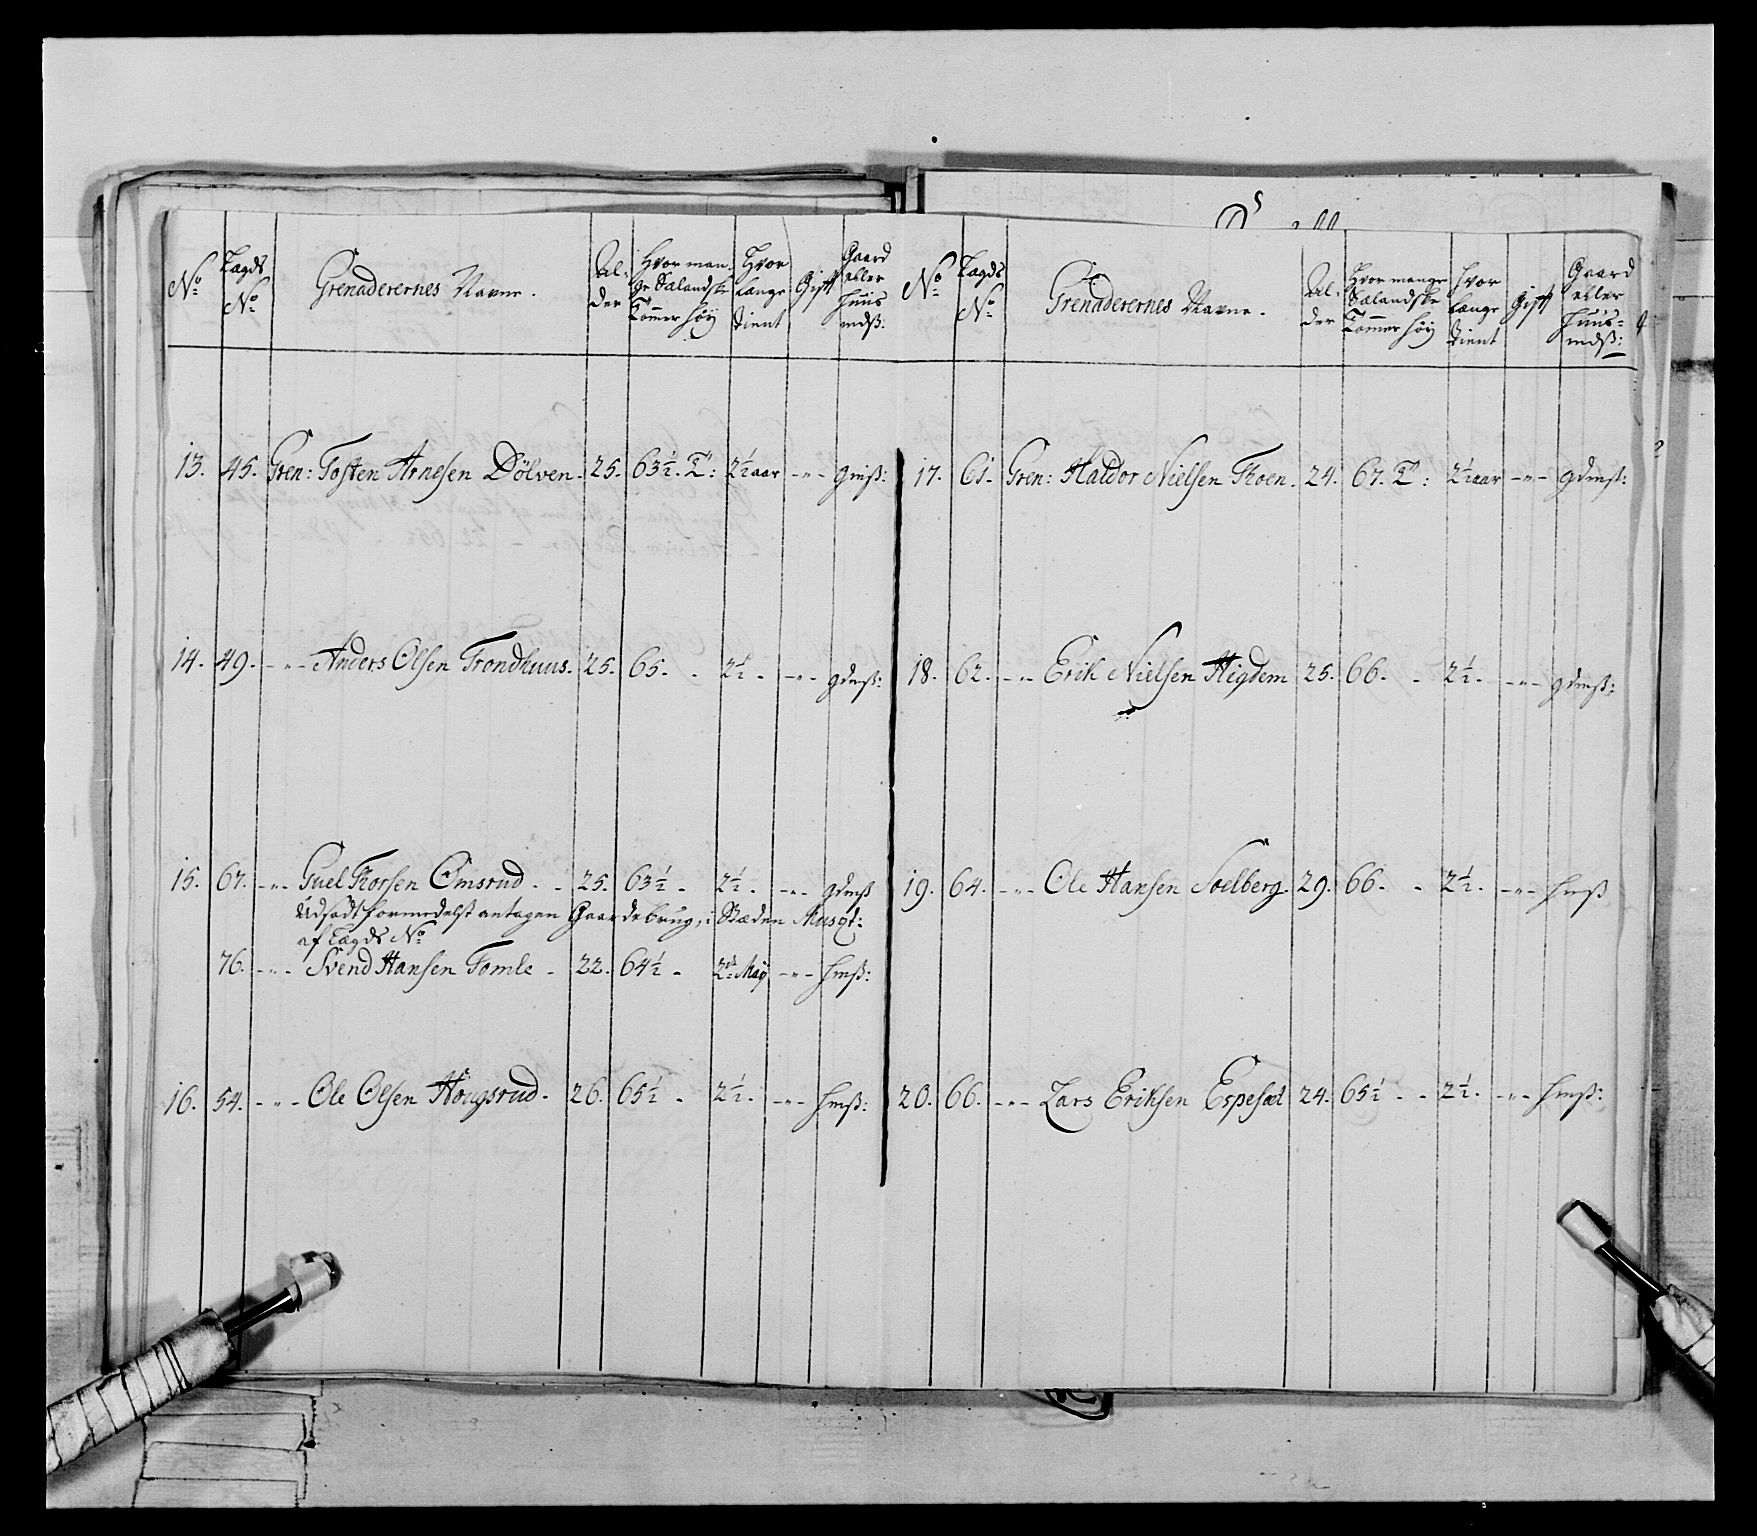 No | Lægds No | Grenaderernes Navne. | Al- der | Hvor man- ge Sælandske Tommer höÿ | Hvor længe tient | Gift | Gaard eller Huus mdß:
13. | 45. | Gren: Tosten Arnesen Dölven. | 25. | 63½. T: | 2½ aar | -"- | gmß:
14. | 49. | -"- Anders Olsen Trondhuus. | 25. | 65. - | 2½ - | -"- | gdmß:
15. | 67. | -"- Guel Thorsen Omsrud. - | 25. | 63½ - | 2½. - | -"- | gdmß
Udsadt formedelst antagen Gaardebrug, i Stæden Musqt:
af Lægds No
76. | -"- Svend Hansen Tomle - | 22. | 64½ - | 2de Maÿ | -"- | hmß:
16. | 54. | -"- Ole Olsen Hougsrud. | 26. | 65½ - | 2½. | -"- | hmß:
No | Lægds No | Grenaderernes Navne. | Al- der | Hvor mange Sælandske Tommer höÿ | Hvor længe tient | Gift | Gaard eller Huus- mdß:
17. | 61. | Gren: Haldor Nielsen Thoen. | 24. | 67. T: | 2½ aar | -"- | gdmß:
18. | 62. | -"- Erik Nielsen Higdem | 25. | 66. - | 2½. | -"- | gdmß:
19. | 64. | -"- Ole Hansen Soelberg. | 29. | 66. - | 2½. | -"- | hmß
20. | 66. | -"- Lars Eriksen Espesæt | 24. | 65½ - | 2½. | -"- | hmß: